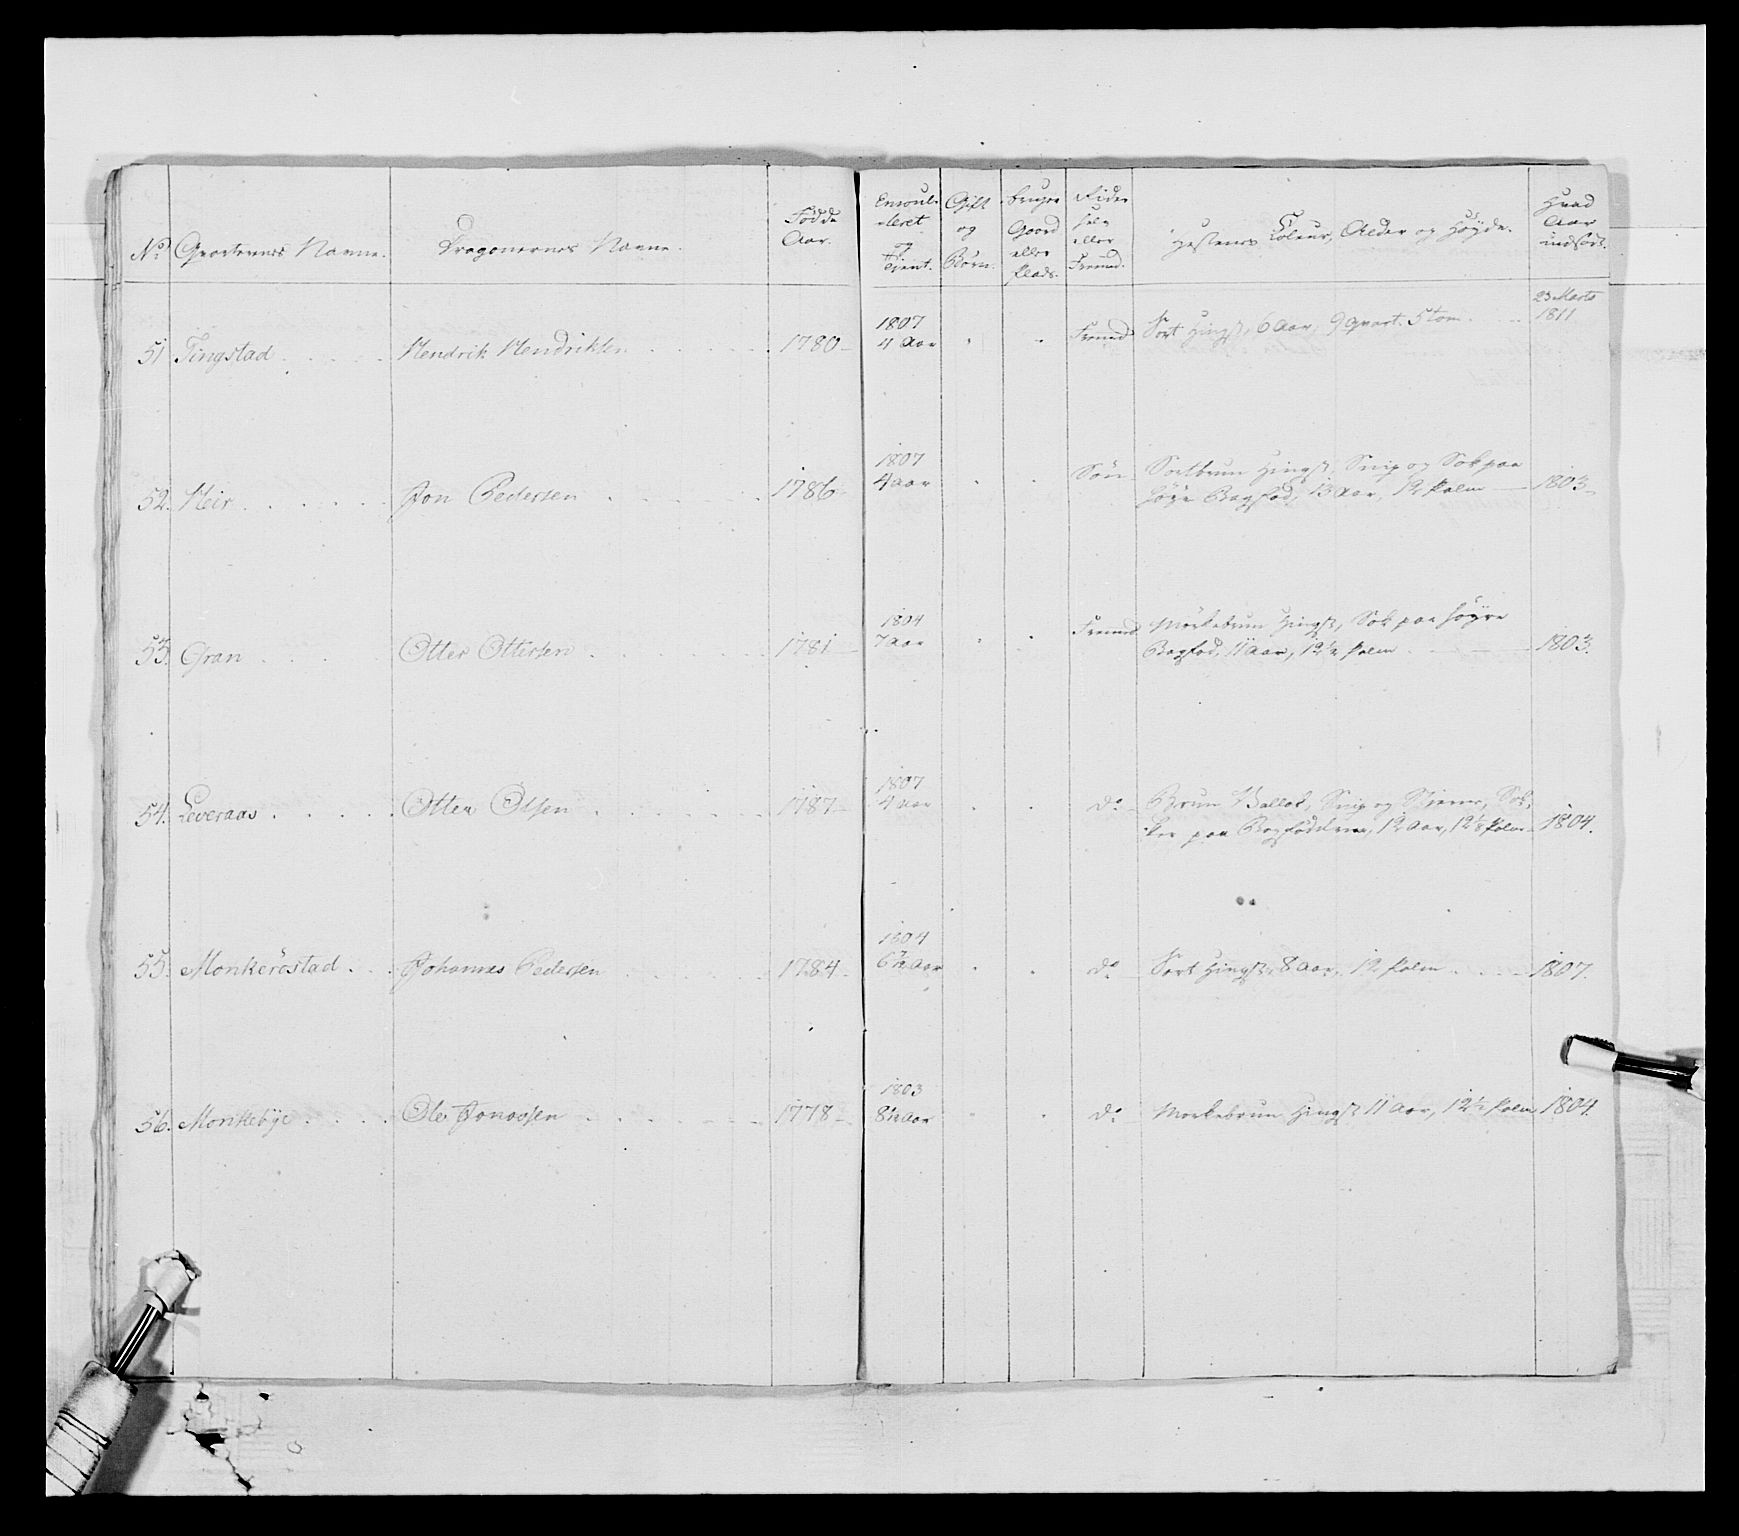 No Qvarterenes Navne. Dragonernes Navne. Fødde Aar. Enroul-leret og Tient. Gift og Børn. bruger Gaard eller Plads. Rider selv eller Fremd. Hestenes Coleur, Alder og Høyde. Hvad Aar indført.
51 Tingstad Hendrik Hendriksen 1780 1807 4 Aar Fremd Sort Hingst, 6 Aar, 9 qvart. 5 tom 23 Marts 1811
52. Heir Jon Pedersen 1786 1807 4 aar Søn Sortbrun Hingst, Snip og Sok paa
høyre Bagfod, 13 Aar, 12 Palm 1803
53. Gran Otter Ottersen 1781 1804 7 aar Fremd Mørkebrun Hingst, Sok paa høyre
Bagfod, 11 Aar, 12½ Palm 1803.
54. Leveraas Otter Olsen 1787 1807 4 aar do Brun Vallak, Snip og Stierne, Sok-
ker paa Bagfødderne, 12 Aar, 12⅛ Palm 1804.
55. Monkerøstad Johannes Pedersen 1784 1804 6½ Aar do Sort Hingst, 8 Aar, 12 Palm 1807.
56. Monkebye Ole Jonassen 1778 1803 8½ Aar do Mørkebrun Hingst 11 Aar, 12½ Palm 1804.